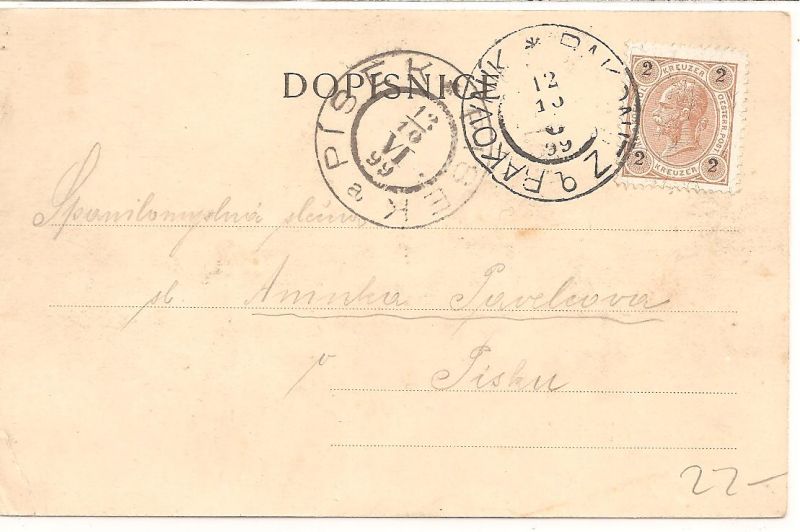 DOPISNICE
PÍSEK * PISEK a
12
13
VI
99
RAKONITZ * RAKOVNÍK q
12
99
2 KREUZER 2
OESTERR. POST
2 KREUZER 2
Spanilomyslná slečna
sl. Aninka Pavelcova
v Písku
22-